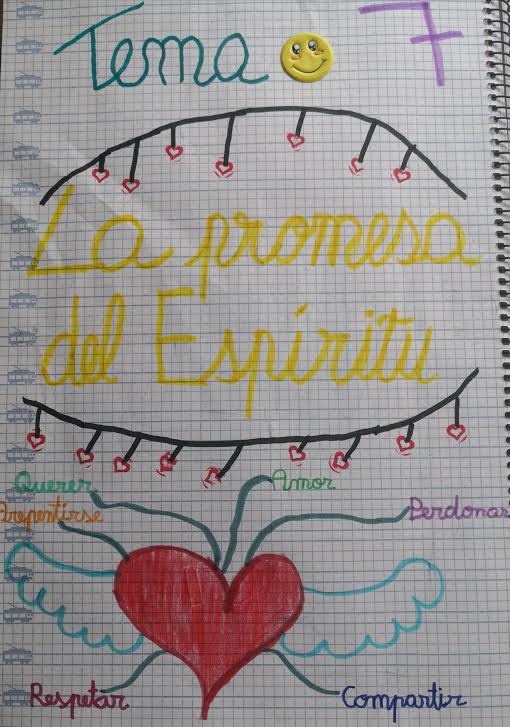 Tema 7
La promesa
del Espíritu
Querer
Amor
Arrepentirse
Perdonar
Respetar
Compartir